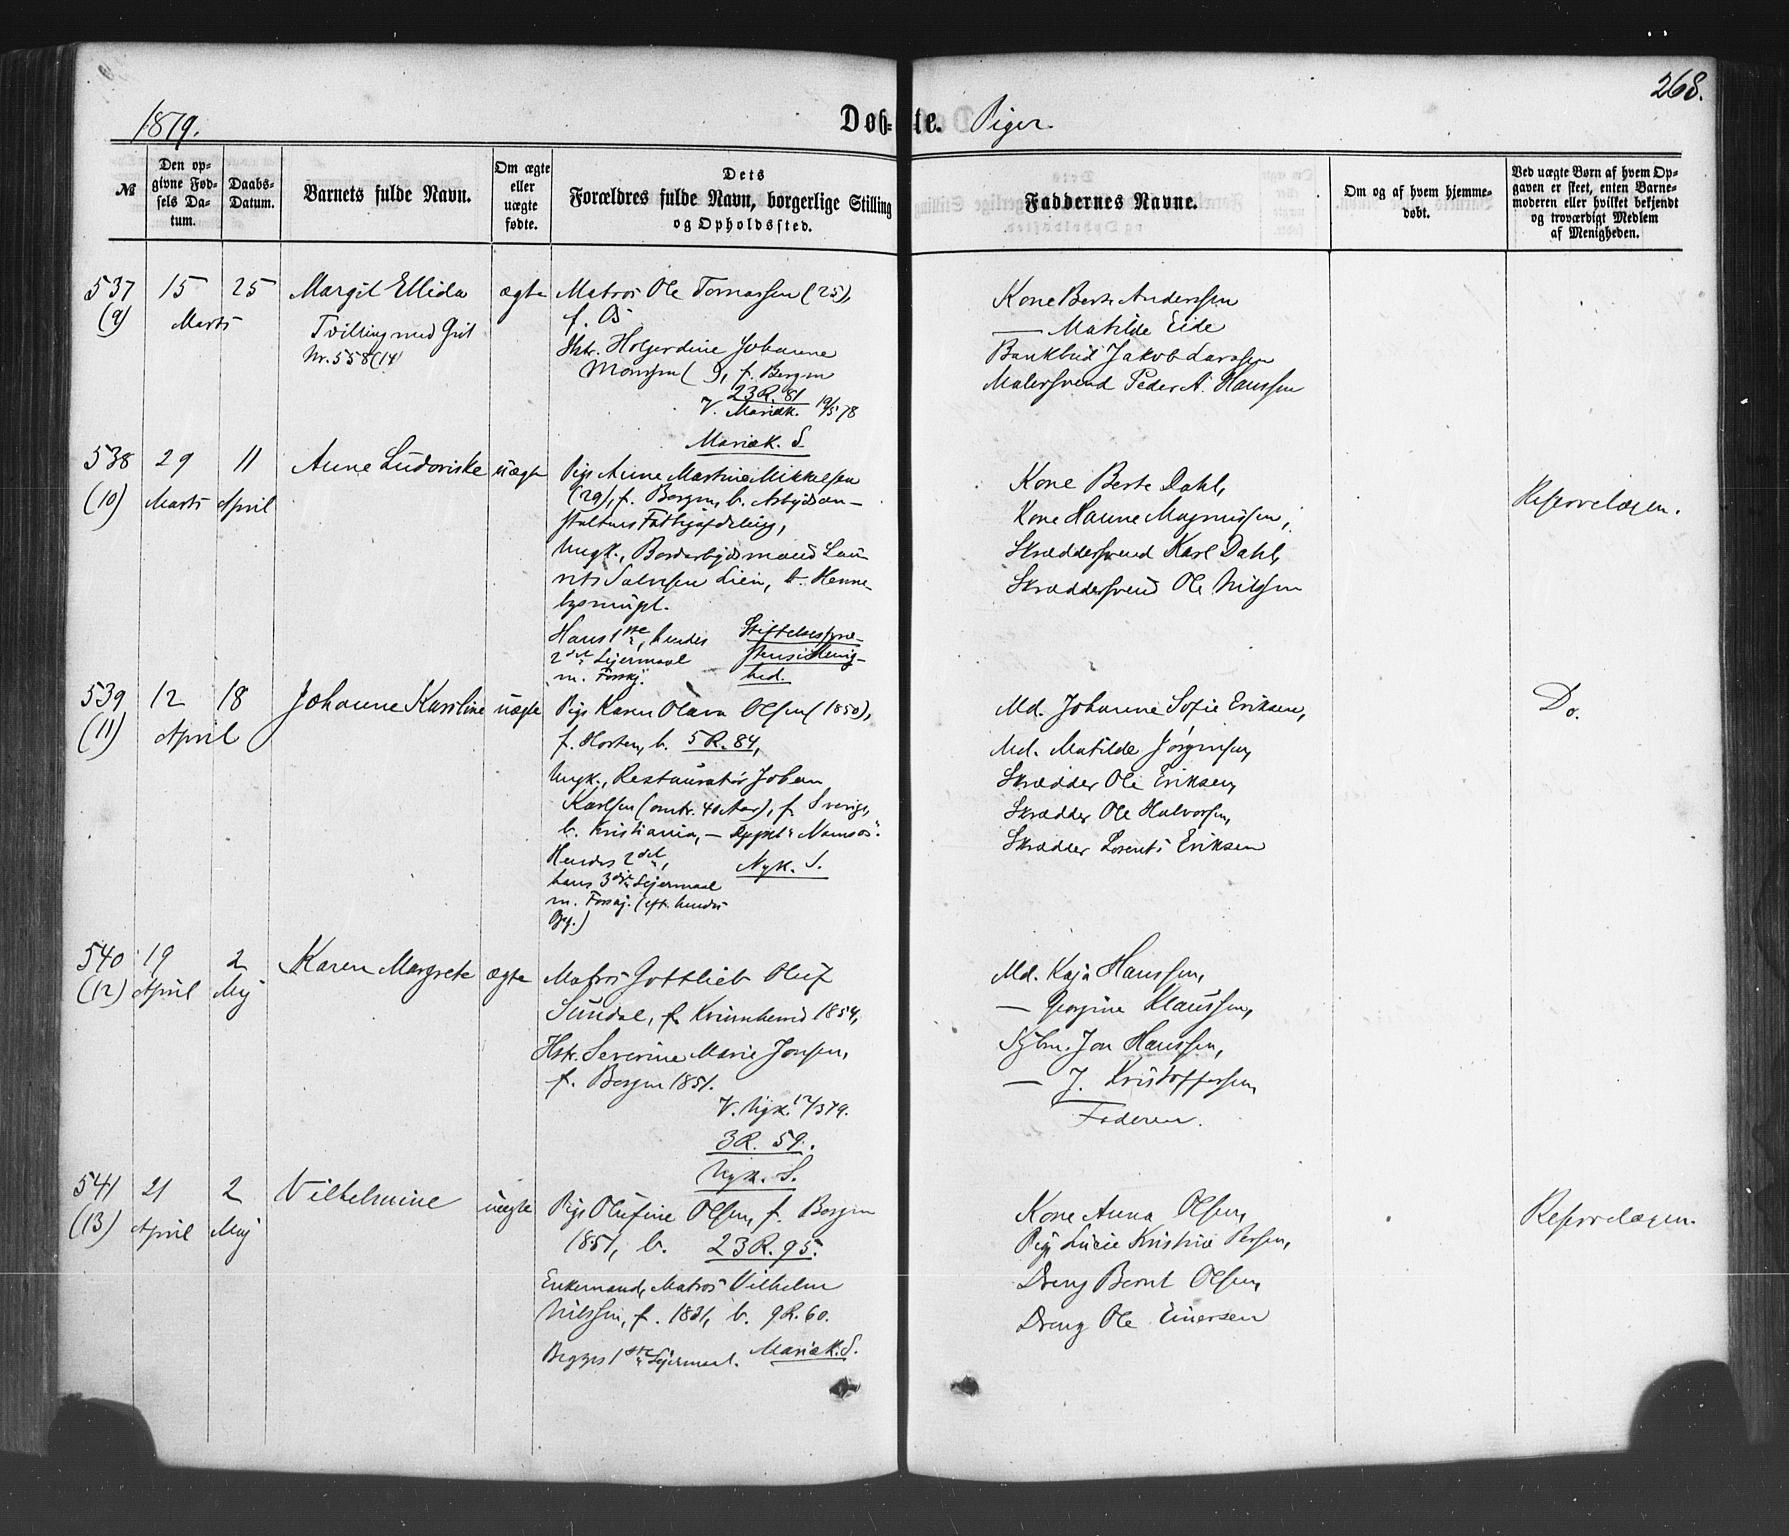 268.
1879.
Døb=te. Piger
№
Den opgivne Fødsels Datum.
Daabs-Datum.
Barnets fulde Navn.
Om ægte eller uægte fødte.
Dets Forældres fulde Navn, borgerlige Stilling og Opholdssted.
Faddernes Navne.
Om og af hvem hjemmedøbt.
Ved uægte Børn af hvem Opgaven er skeet, enten Barnemoderen eller hvilket bekjendt og troværdigt Medlem af Menigheden.
537 (9)
15 Marts
25
Margit Ellida
Tvilling med Gut
Nr. 558 (14)
ægte
Matros Ole Tomassen (25),
f. Os
Hstr. Holgerdine Johanne
Monssen ( ), f. Bergen
23 R. 81
V. Mariæk. 19/5 78
Mariæk. S.
Kone Berte Anderssen
— Matilde Eide
Bankbud Jakob Larssen
Malersvend Peder A. Hanssen
538 (10)
29 Marts
11 April
Anne Ludoviske
uægte
Pige Anne Martine Mikkelsen
(29), f. Bergen, b. Arbeidsan-
staltens Fattigafdeling,
Ungk., Bordarbejdsmand Lau-
rits Salvesen Lien, b. Henne-
bysmuget.
Hans 1ste, hendes
2det Lejermaal
m. Forskj.
Stiftelsesforstanderinde
Kone Berte Dahl,
Kone Hanne Magnussen,
Skræddersvend Karl Dahl,
Skræddersvend Ole Nilsen
Reservelægen.
539 (11)
12 April
18
Johanne Karoline
uægte
Pige Karen Olava Olsen (1850),
f. Horten, b. 5 R. 84,
Ungk., Restauratør Johan
Karlsen (omtr. 40 Aar), f. Sverige,
b. Kristiania, —
Hendes 2det,
hans 3die Lejermaal
m. Forskj. (eft. hendes
Opg.)
Nyk. S.
Md. Johanne Sofie Eriksen,
Md. Matilde Jørgensen,
Skrædder Ole Eriksen,
Skrædder Ole Halvorsen,
Skrædder Lorents Eriksen
Do.
540 (12)
19 April
2 Mej
Karen Margrete
ægte
Matros Gottlieb Oluf
Sundal, f. Kvinnherred 1854,
Hstr. Severine Marie Jonsen,
f. Bergen 1851.
V. Nyk. 12/3 79.
3 R. 59.
Nyk. S.
Md. Kaja Hanssen,
— Georgine Klaussen,
Jon Hanssen,
— J. Kristoffersen,
Faderen.
541 (13)
21 April
2 Mej
Vilhelmine
uægte
Pige Olufine Olsen, f. Bergen
1851, b. 23 R. 95.
Enkemand, Matros Vilhelm
Nilssen, f. 1831, b. 9 R. 60.
Begges 1ste Lejermaal.
Mariæk. S.
Kone Anna Olsen,
Pige Lucie Kristine Persen,
Dreng Bernt Olsen,
Dreng Ole Einersen
Reservelægen.